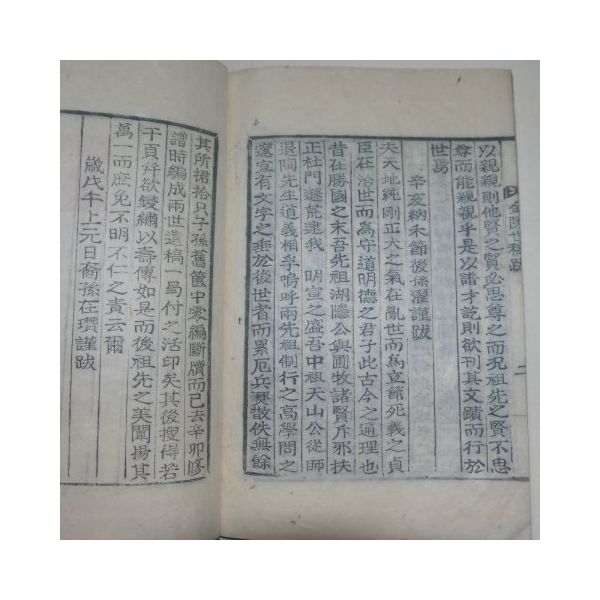 以親親則他賢之賢必思尊之而况祖先之賢不思
尊而能親親乎是以譜才訖則欲刊其文蹟而行於
世焉
辛亥納禾節後孫濯謹跋
夫天地純剛正大之氣在亂世而爲立節死義之貞
臣在治世而爲守道明德之君子此古今之通理也
昔在勝國之末吾先祖湖隱公與圃牧諸賢斥邪扶
正杜門遯荒逮我 明宣之盛吾中祖天山公從師
退陶先生道義相孚嗚呼兩先祖制行之高學問之
邃宜有文字之垂於後世者而累厄兵燹散佚無餘
其所捃拾只子孫舊篋中零編斷牘而已去辛卯修
譜時編成兩世遺稿一局付之活印矣其後搜得若
干頁幷欲鋟繡以壽傳如是而後祖先之美闡揚其
萬一而庶免不明不仁之責云爾
歲戊午上元日裔孫在瓚謹跋
世稿跋
二